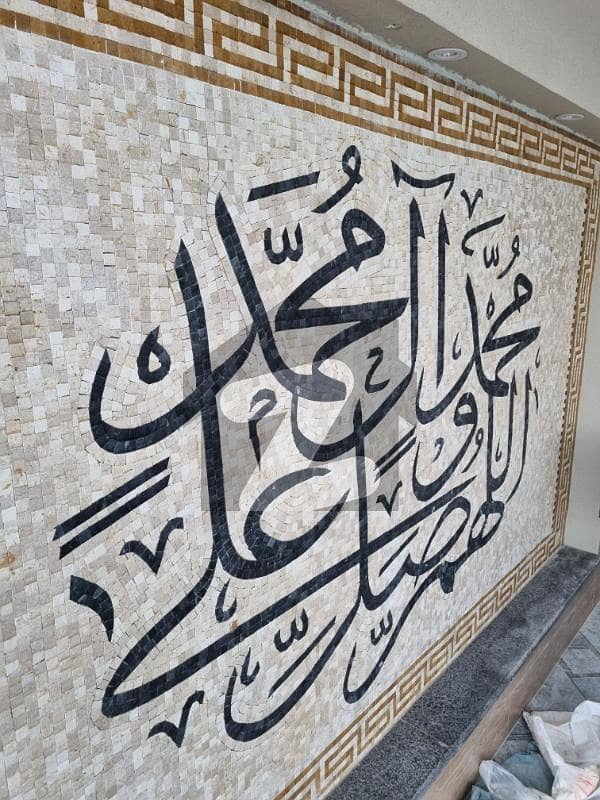 اللهم صل على
محمد وآل محمد